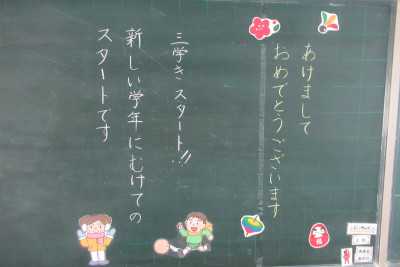 あけまして
おめでとうございます
三学きスタート!!
新しい学年にむけての
スタートです